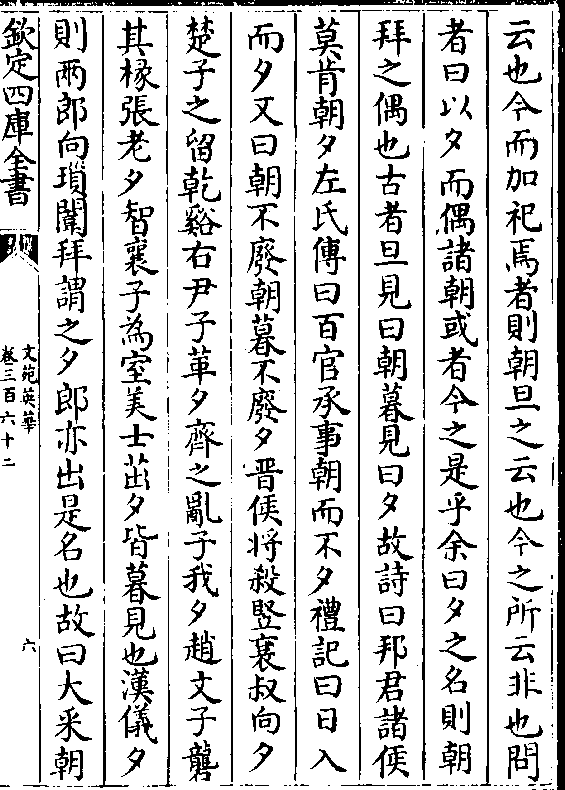 云也今而加祀焉者則朝旦之云也今之所云非也問
者曰以夕而偶諸朝或者今之是乎余曰夕之名則朝
拜之偶也古者旦見曰朝暮見曰夕故詩曰邦君諸侯
莫肯朝夕左氏傳曰百官承事朝而不夕禮記曰日入
而夕又曰朝不廢朝暮不廢夕晉侯将殺竪襄叔向夕
楚子之留乾谿右尹子革夕齊之亂子我夕趙文子礱
其椽張老夕智襄子為室美士茁夕皆暮見也漢儀夕
則兩郎向瑣闈拜謂之夕郎亦出是名也故曰大采朝
欽定四庫全書
文苑英華
卷三百六十二
六